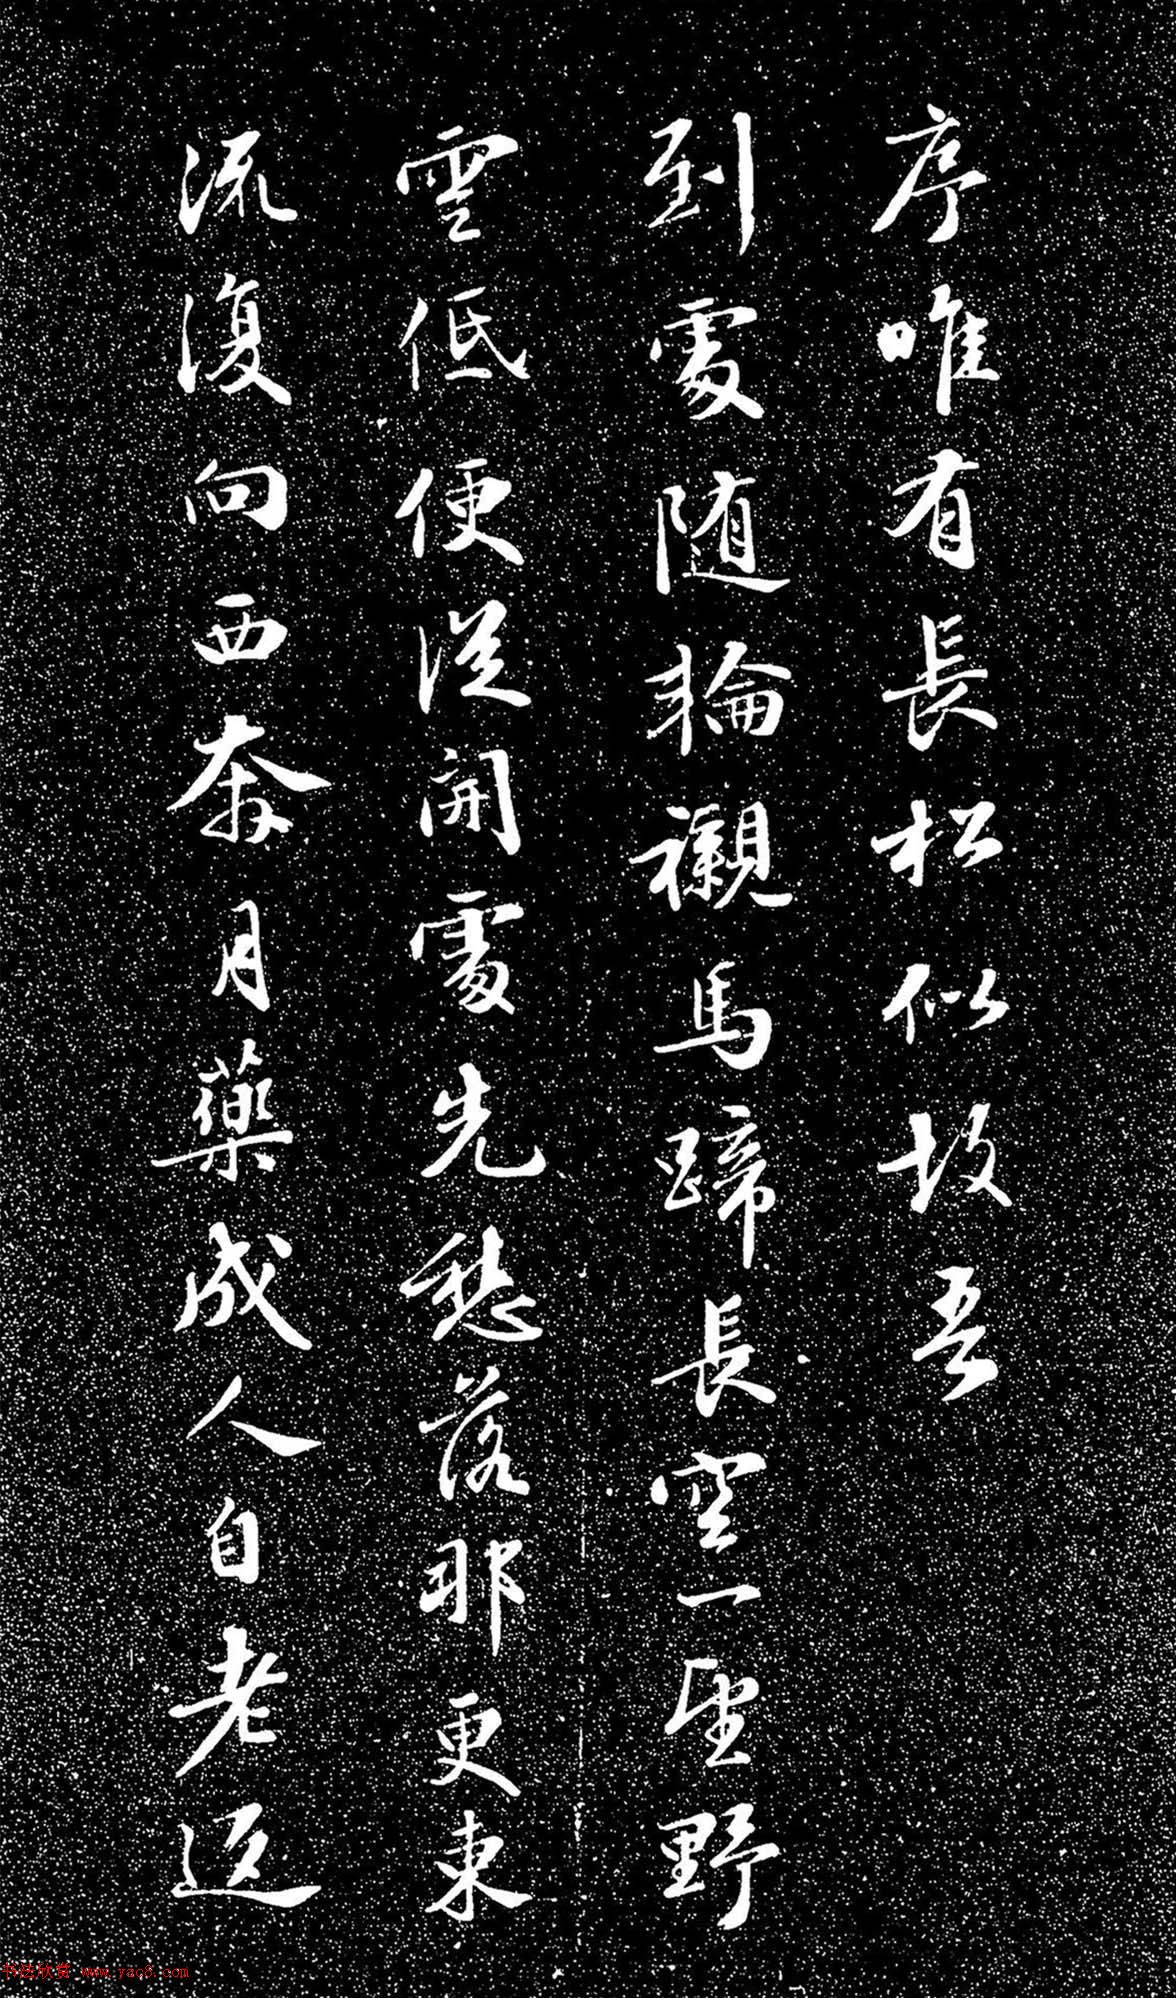 序唯有長松似故吾
到處随輪襯馬蹄長空一望野
雲低便從開處先愁落那更東
流復向西奈月藥成人自老迢
书法欣赏 www.yac8.com